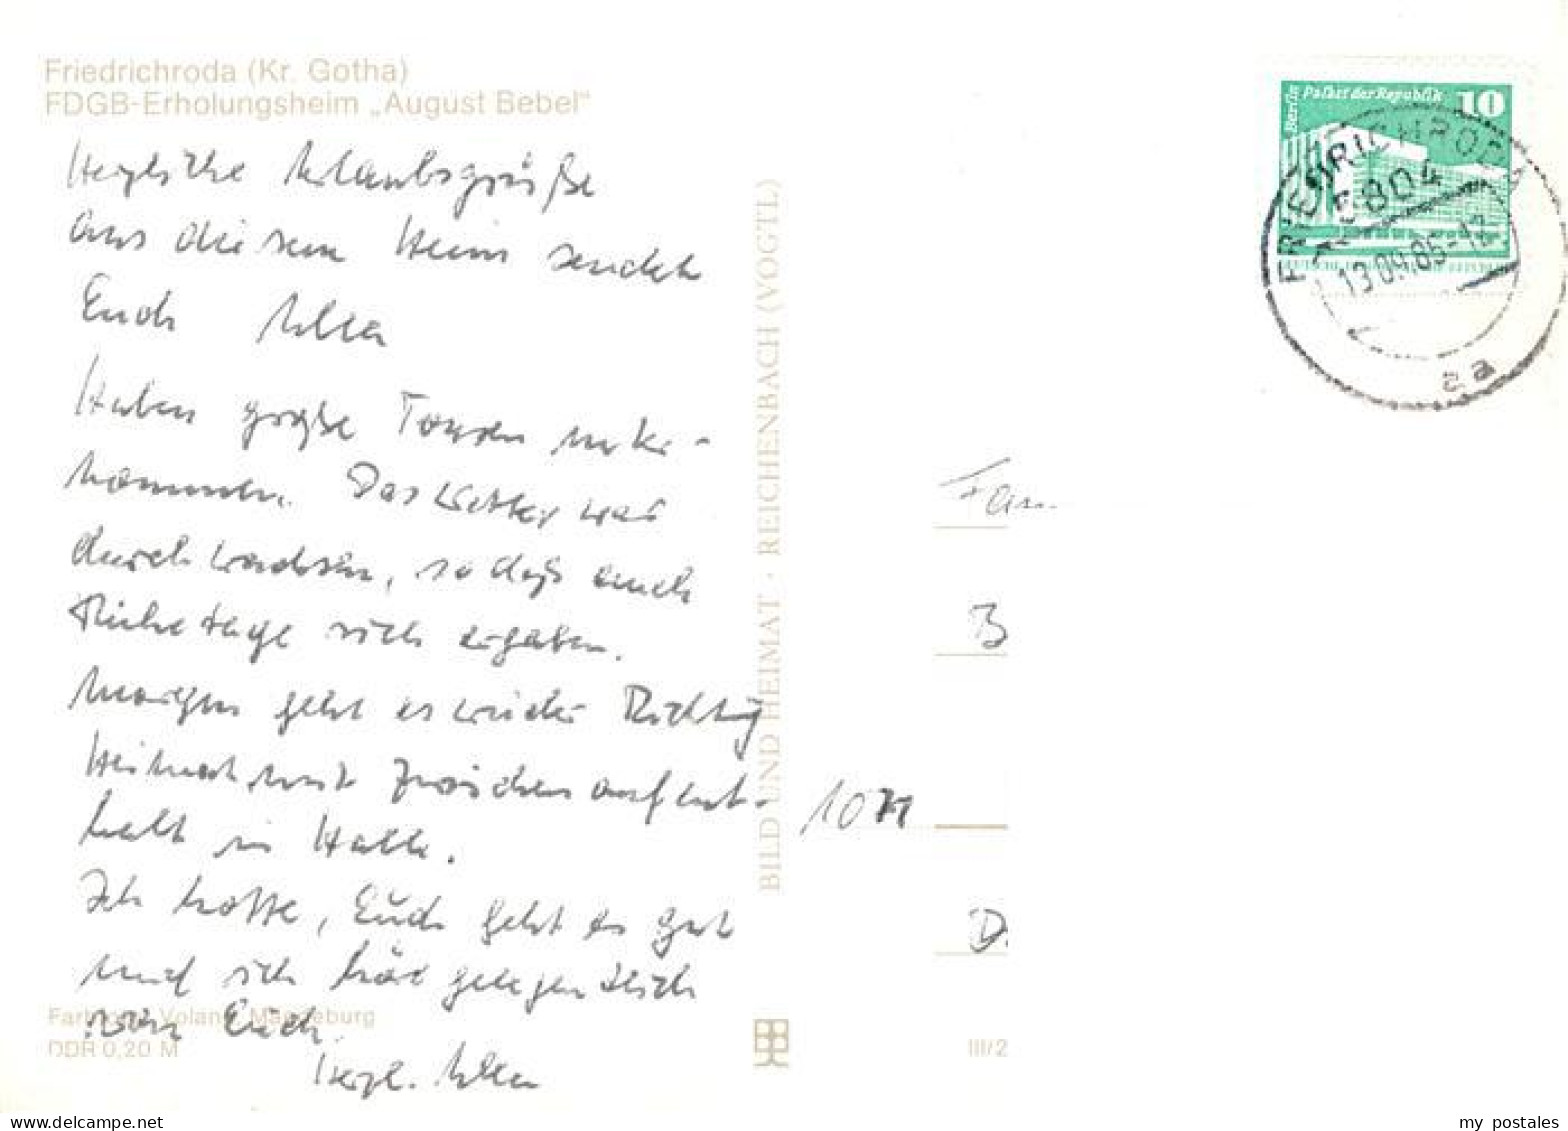 Friedrichroda (Kr. Gotha)
FDGB-Erholungsheim „August Bebel"
Herzliche Urlaubsgrüße
aus diesem Heim sendet
Euch Ulla
Haben große Touren unter-
nommen. Das Wetter war
durchwachsen, so daß auch
Ruhetage sich ergaben.
Morgen geht es wieder Richtung
Heimat mit Zwischenaufent-
halt in Halle.
Ich hoffe, Euch geht es gut
und ich hör gelegentlich
von Euch.
Herzl. Ulla
Farbfoto: Voland, Magdeburg
DDR 0,20 M
BILD UND HEIMAT · REICHENBACH (VOGTL)
III/2
Berlin Palast der Republik 10
DEUTSCHE DEMOKRATISCHE REPUBLIK
FRIEDRICHRODA
5804
13.09.85-12
aa
Fam.
B
10
D.
www.delcampe.net
my_postales